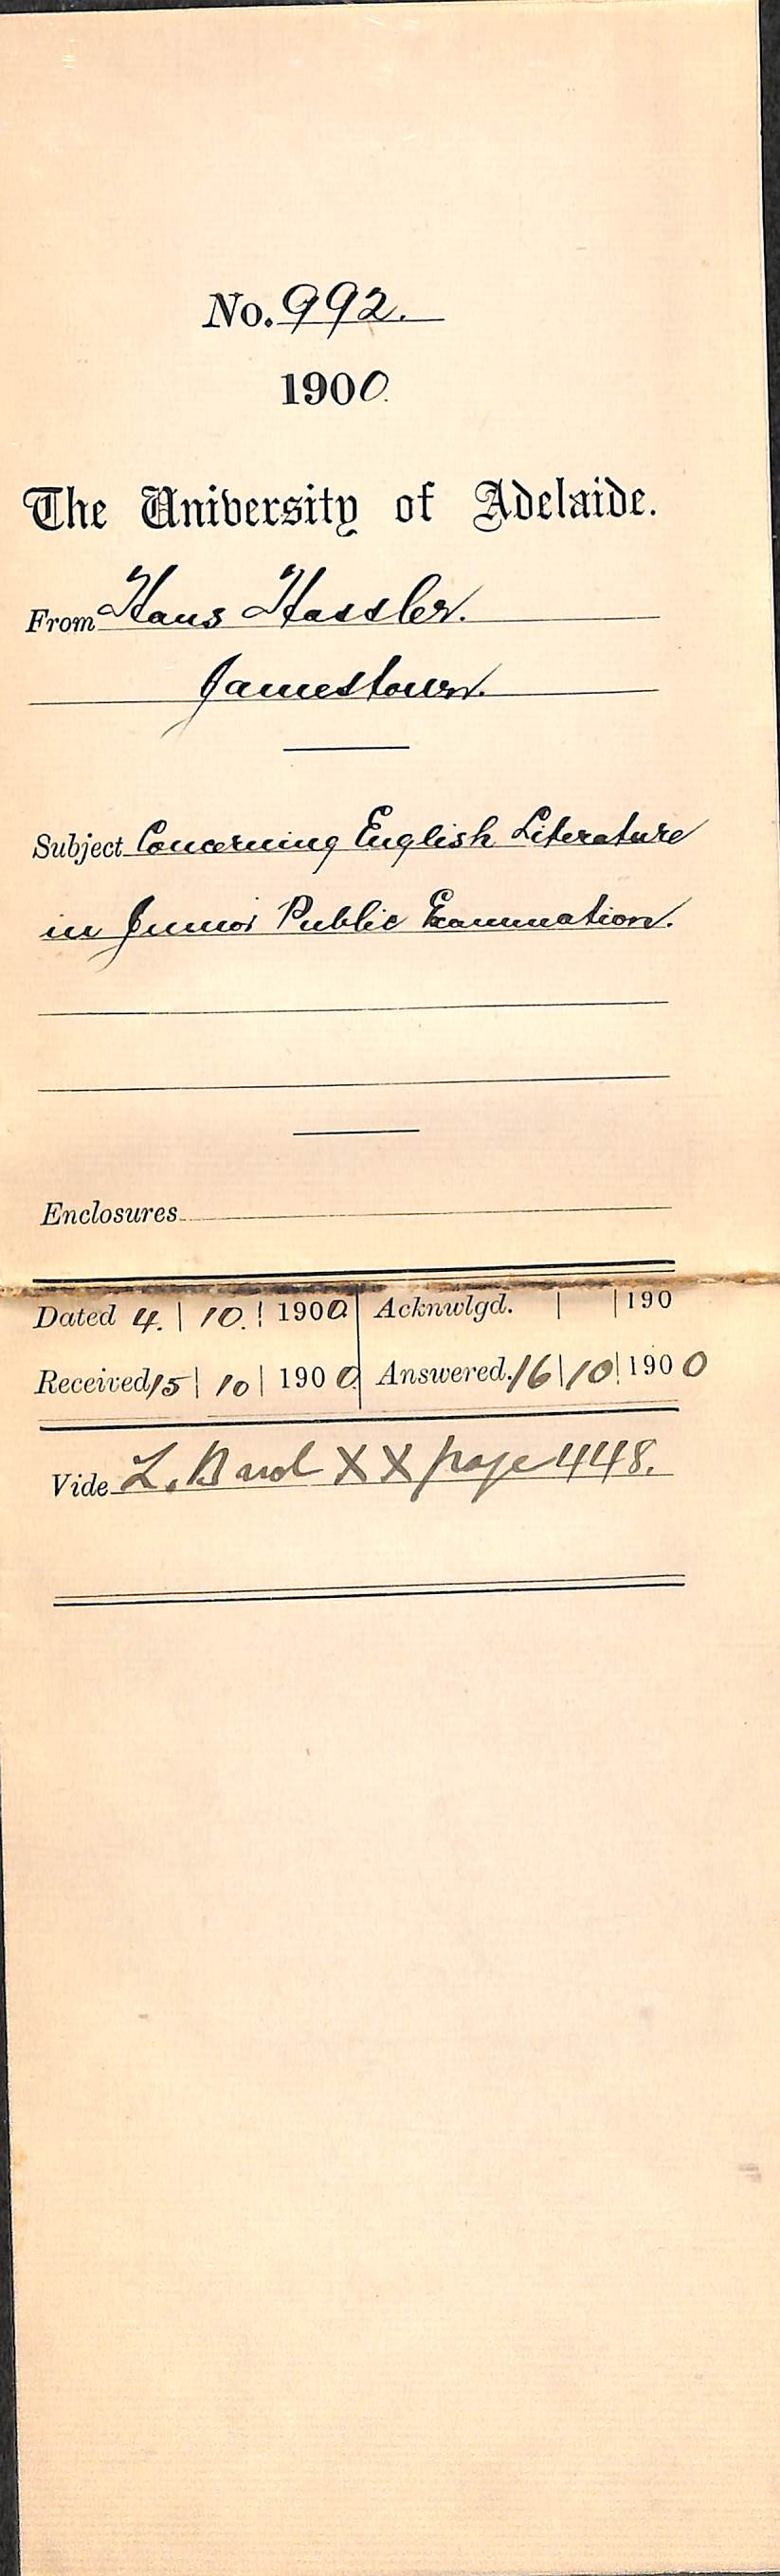 No. 992.
1900.
The University of Adelaide.
From Hans Hassler.
Jamestown.
Subject Concerning English Literature
in Junior Public Examination.
Enclosures
Dated 4. | 10. | 1900 | Acknwlgd. | | 190
Received 15 | 10 | 1900 | Answered. 16 | 10 | 1900
Vide L. B XX page 448.